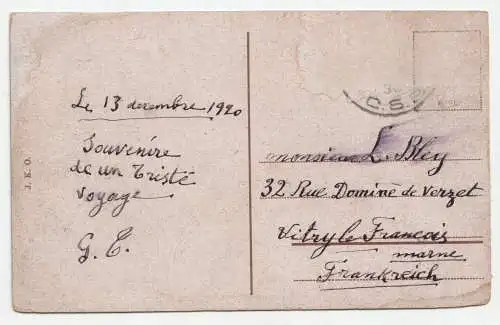 Le 13 decembre 1920
Souvenire
de un Triste
voyage
G. E.
J. K. O.
C.S.
monsieur L. Bley
32 Rue Dominé de Verzet
Vitry le Francois
marne
Frankreich